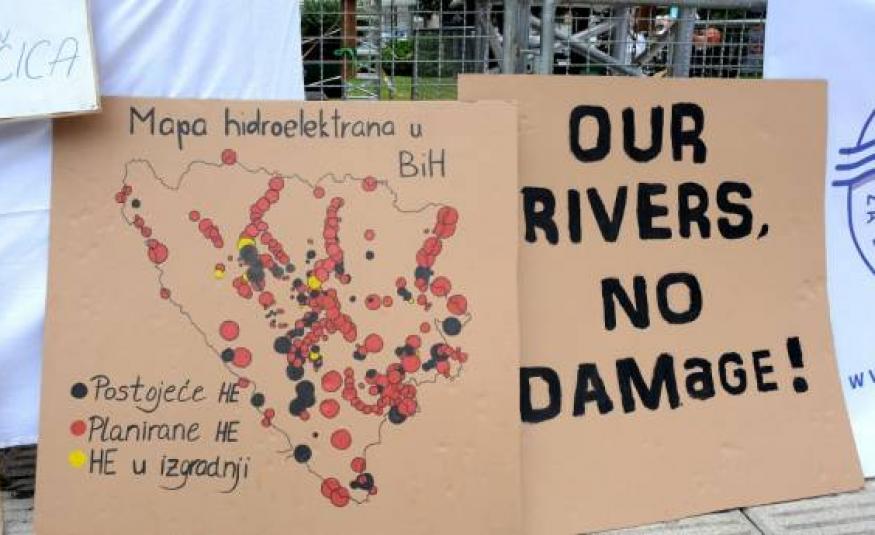 ČICA
Mapa hidroelektrana u
BiH
Postojeće HE
Planirane HE
HE u izgradnji
OUR
RIVERS,
NO
DAMaGE!